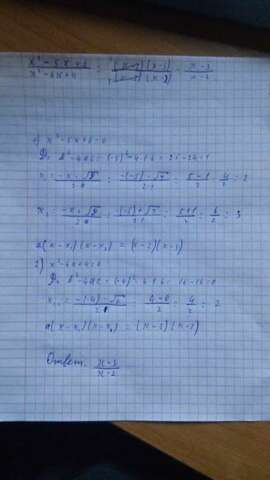 x² - 5x + 6 / x² - 4x + 4 = (x-2)(x-3) / (x-2)(x-2) = x-3 / x-2
1) x² - 5x + 6 = 0
D = b² - 4ac = (-5)² - 4·1·6 = 25 - 24 = 1
x₁ = -b - √D / 2a = -(-5) - √1 / 2·1 = 5-1 / 2 = 4 / 2 = 2
x₂ = -b + √D / 2a = -(-5) + √1 / 2·1 = 5+1 / 2 = 6 / 2 = 3
a(x - x₁)(x - x₂) = (x-2)(x-3)
2) x² - 4x + 4 = 0
D = b² - 4ac = (-4)² - 4·4 = 16 - 16 = 0
= -(-4) - √0 / 2 = 4-0 / 2 = 4 / 2 = 2
a(x - x₁)(x - x₂) = (x-2)(x-2)
Ответ: x-3 / x-2